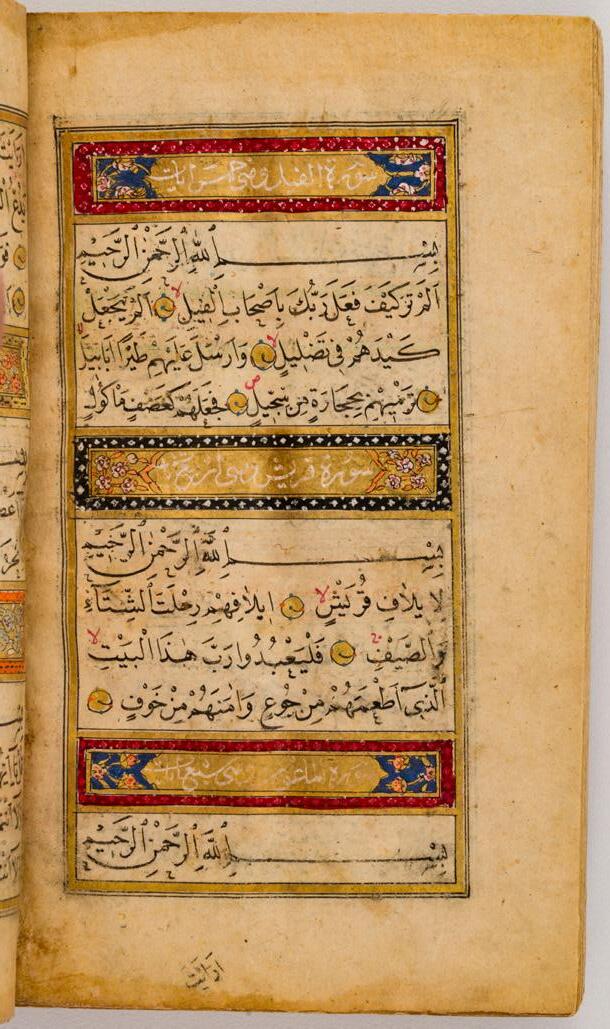 سورة الفيل وهي خمس ايات
بِسْمِ اللّٰهِ الرَّحْمٰنِ الرَّحِيمِ
اَلَمْ تَرَ كَيْفَ فَعَلَ رَبُّكَ بِاَصْحَابِ الْفِيلِ لا اَلَمْ يَجْعَلْ
كَيْدَهُمْ فِي تَضْلِيلٍ لا وَاَرْسَلَ عَلَيْهِمْ طَيْرًا اَبَابِيلَ لا
تَرْمِيهِمْ بِحِجَارَةٍ مِنْ سِجِّيلٍ ص فَجَعَلَهُمْ كَعَصْفٍ مَأْكُولٍ
سورة قريش وهي اربع
بِسْمِ اللّٰهِ الرَّحْمٰنِ الرَّحِيمِ
لِاِيلَافِ قُرَيْشٍ لا اِيلَافِهِمْ رِحْلَتَ الشِّتَاءِ
وَالصَّيْفِ ج فَلْيَعْبُدُوا رَبَّ هٰذَا الْبَيْتِ لا
الَّذِي اَطْعَمَهُمْ مِنْ جُوعٍ وَاٰمَنَهُمْ مِنْ خَوْفٍ
سورة وهي سبع ايات
بِسْمِ اللّٰهِ الرَّحْمٰنِ الرَّحِيمِ
ارايت